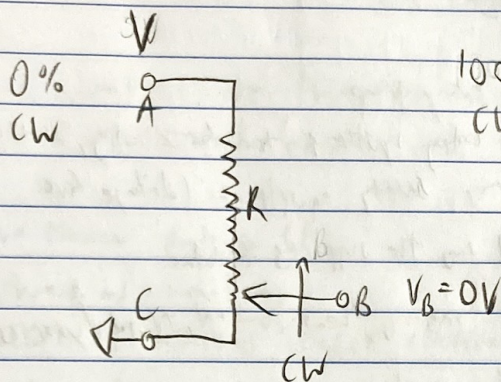 V
0%
CW
A
10
R
B
C
B
V_B = 0V
CW